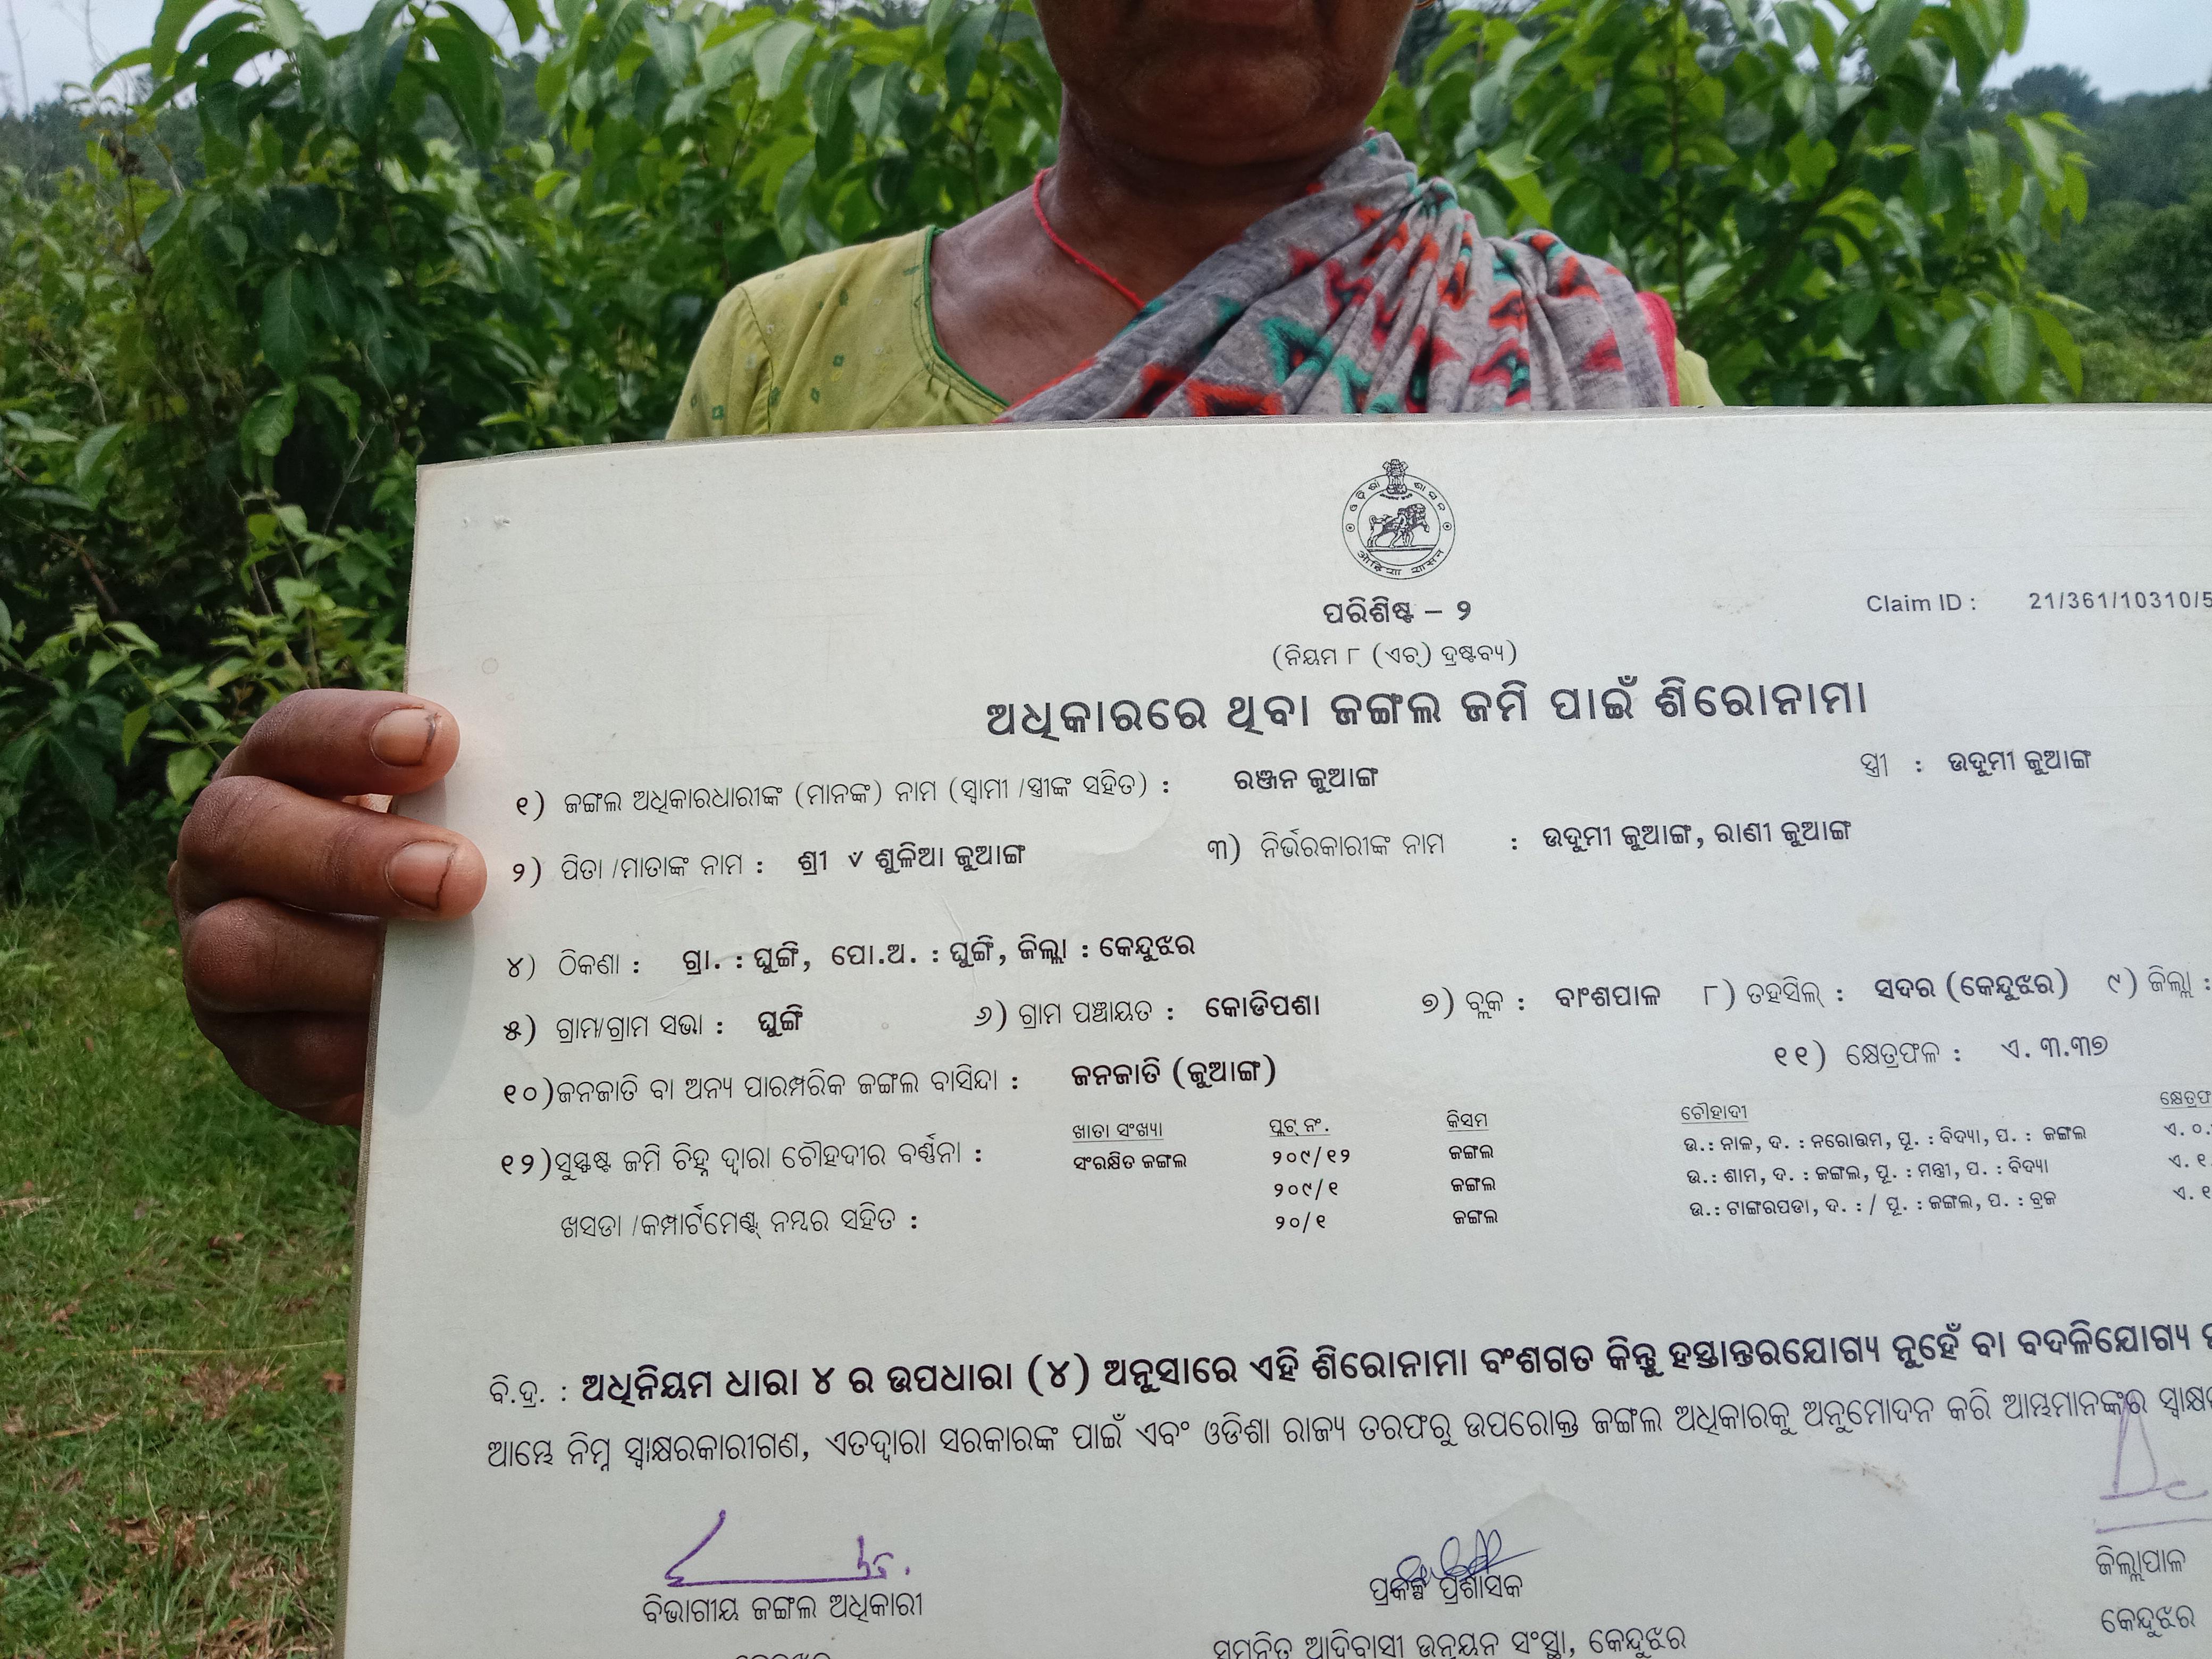 ପରିଶିଷ୍ଟ – ୨
Claim ID : 21/361/10310/5
(ନିୟମ ୮ (ଏଚ୍) ଦ୍ରଷ୍ଟବ୍ୟ)
ଅଧିକାରରେ ଥିବା ଜଙ୍ଗଲ ଜମି ପାଇଁ ଶିରୋନାମା
୧) ଜଙ୍ଗଲ ଅଧିକାରଧାରୀଙ୍କ (ମାନଙ୍କ) ନାମ (ସ୍ୱାମୀ /ସ୍ତ୍ରୀଙ୍କ ସହିତ) : ରଞ୍ଜନ ଜୁଆଙ୍ଗ ସ୍ତ୍ରୀ : ଉଦୁମୀ ଜୁଆଙ୍ଗ
୨) ପିତା /ମାତାଙ୍କ ନାମ : ଶ୍ରୀ ଶୁଳିଆ ଜୁଆଙ୍ଗ ୩) ନିର୍ଭରକାରୀଙ୍କ ନାମ : ଉଦୁମୀ ଜୁଆଙ୍ଗ, ରାଣୀ ଜୁଆଙ୍ଗ
୪) ଠିକଣା : ଗ୍ରା. : ଘୁଙ୍ଗି, ପୋ.ଅ. : ଘୁଙ୍ଗି, ଜିଲ୍ଲା : କେନ୍ଦୁଝର
୫) ଗ୍ରାମ/ଗ୍ରାମ ସଭା : ଘୁଙ୍ଗି ୬) ଗ୍ରାମ ପଞ୍ଚାୟତ : କୋଡିପଶା ୭) ବ୍ଲକ : ବାଂଶପାଳ ୮) ତହସିଲ୍ : ସଦର (କେନ୍ଦୁଝର) ୯) ଜିଲ୍ଲା :
୧୦)ଜନଜାତି ବା ଅନ୍ୟ ପାରମ୍ପରିକ ଜଙ୍ଗଲ ବାସିନ୍ଦା : ଜନଜାତି (ଜୁଆଙ୍ଗ) ୧୧) କ୍ଷେତ୍ରଫଳ : ଏ. ୩.୩୭
ଖାତା ସଂଖ୍ୟା ପ୍ଲଟ୍ ନଂ. କିସମ ଚୌହାଦୀ
୧୨)ସୁସ୍ପଷ୍ଟ ଜମି ଚିହ୍ନ ଦ୍ୱାରା ଚୌହଦୀର ବର୍ଣ୍ଣନା : ସଂରକ୍ଷିତ ଜଙ୍ଗଲ ୨୦୯/୧୨ ଜଙ୍ଗଲ ଉ.: ନାଳ, ଦ. : ନରୋତ୍ତମ, ପୂ. : ବିଦ୍ୟା, ପ. : ଜଙ୍ଗଲ ଏ. ୦.
୨୦୯/୧ ଜଙ୍ଗଲ ଉ.: ଶାମ, ଦ. : ଜଙ୍ଗଲ, ପୂ. : ମନ୍ତ୍ରୀ, ପ. : ବିଦ୍ୟା ଏ. ୧
ଖସଡା /କମ୍ପାର୍ଟମେଣ୍ଟ୍ ନମ୍ବର ସହିତ : ୨୦/୧ ଜଙ୍ଗଲ ଉ.: ଟାଙ୍ଗରପଡା, ଦ. : / ପୂ. : ଜଙ୍ଗଲ, ପ. : ବ୍ରଜ ଏ. ୧
ବି.ଦ୍ର. : ଅଧିନିୟମ ଧାରା ୪ ର ଉପଧାରା (୪) ଅନୁସାରେ ଏହି ଶିରୋନାମା ବଂଶଗତ କିନ୍ତୁ ହସ୍ତାନ୍ତରଯୋଗ୍ୟ ନୁହେଁ ବା ବଦଳିଯୋଗ୍ୟ
ଆମ୍ଭେ ନିମ୍ନ ସ୍ୱାକ୍ଷରକାରୀଗଣ, ଏତଦ୍ୱାରା ସରକାରଙ୍କ ପାଇଁ ଏବଂ ଓଡିଶା ରାଜ୍ୟ ତରଫରୁ ଉପରୋକ୍ତ ଜଙ୍ଗଲ ଅଧିକାରକୁ ଅନୁମୋଦନ କରି ଆମ୍ଭମାନଙ୍କର
ବିଭାଗୀୟ ଜଙ୍ଗଲ ଅଧିକାରୀ
ପ୍ରକଳ୍ପ ପ୍ରଶାସକ
ସମନ୍ୱିତ ଆଦିବାସୀ ଉନ୍ନୟନ ସଂସ୍ଥା, କେନ୍ଦୁଝର
ଜିଲ୍ଲାପାଳ
କେନ୍ଦୁଝର